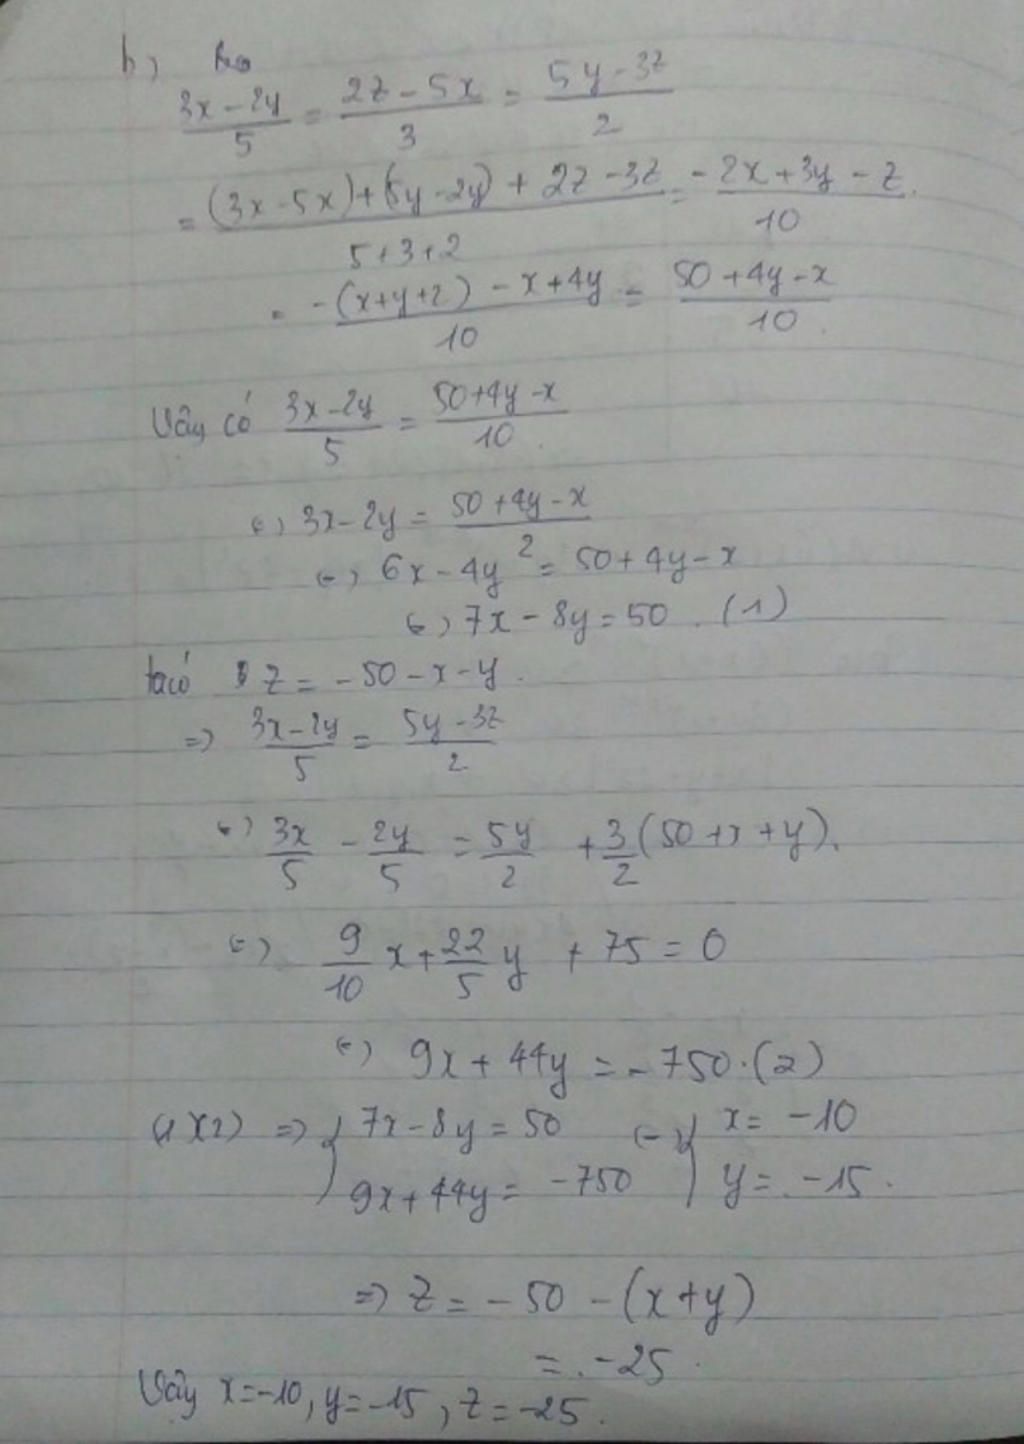 b)
(3x-2y)/5 = (2z-5x)/3 = (5y-3z)/2
= ((3x-5x)+(5y-2y)+2z-3z)/(5+3+2) = (-2x+3y-z)/10.
= (-(x+y+z)-x+4y)/10 = (50+4y-x)/10.
Vậy có (3x-2y)/5 = (50+4y-x)/10.
(=) 3x-2y = (50+4y-x)/2
(=) 6x-4y = 50+4y-x
(=) 7x-8y=50. (1)
ta có z = -50-x-y.
=> (3x-2y)/5 = (5y-3z)/2
(=) 3x/5 - 2y/5 = 5y/2 + 3/2(50+x+y).
(=) 9/10 x + 22/5 y + 75 = 0
(=) 9x + 44y = -750. (2)
(1)(2) => { 7x-8y = 50 (=) { x = -10
9x+44y = -750 y = -15.
=> z = -50-(x+y)
= -25.
Vậy x=-10, y=-15, z=-25.